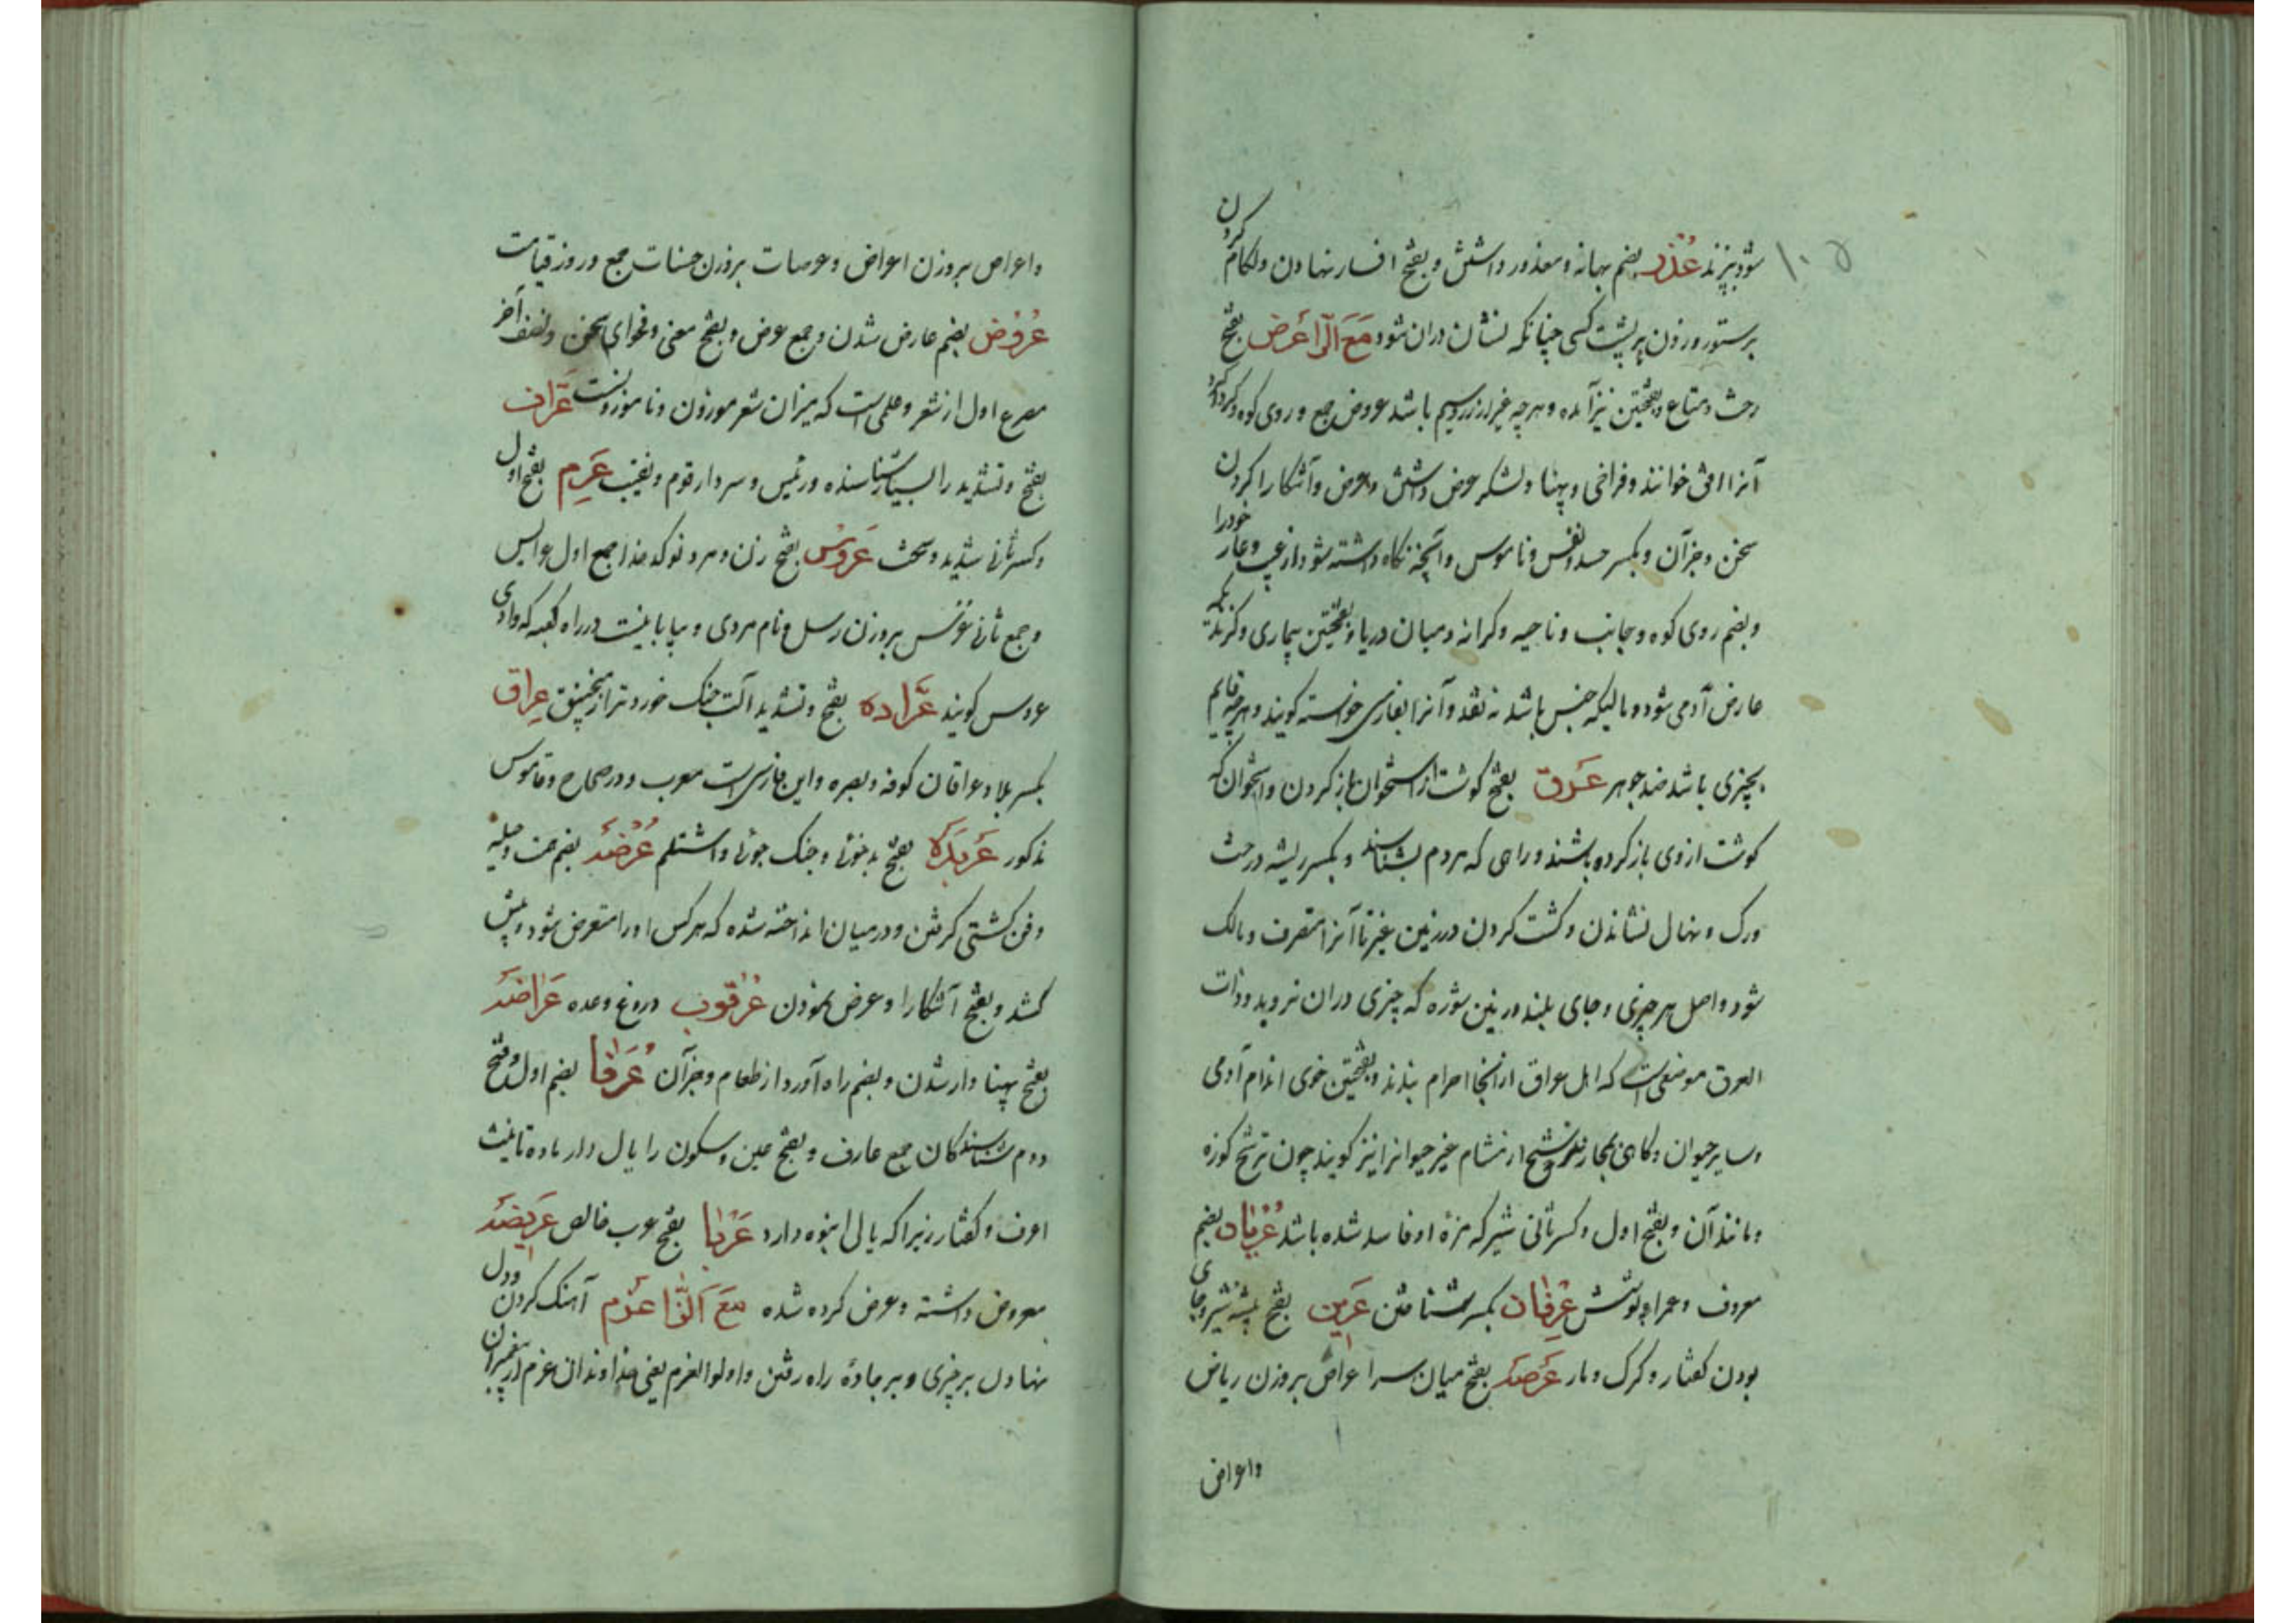 ۱۰۵
شود بپزند عُذر بضم بهانه و معذور داشتن و بفتح افسار نهادن و لکام کردن
بر ستور و زدن بر پشت کسی چنانکه نشان دران شود مَعَ الرّا عَرض بفتح
رخت و متاع و بفتحتین نیز آمده و هرچه غیر از زر و سیم باشد عروض جمع و روی کوه
آنرا افق خوانند و فراخی و پهنا و لشکر عرض داشتن و عرض و آشکارا کردن
سخن و جز آن و بکسر حسد و نفس و ناموس و آنچه نکاه داشته شود از عیب و عار خود را
و بضم روی کوه و جانب و ناحیه و کرانه و میان دریا و بفتحتین بیماری و کزند که
عارض آدمی شود و مالیکه جنس باشد نه نقد و آنرا بفارسی خواسته کویند و هرچه قایم
بچیزی باشد ضد جوهر عَرق بفتح کوشت از استخوان باز کردن و استخوان که
کوشت از وی باز کرده باشند و راهی که مردم بشناسند و بکسر ریشه درخت
ورک و نهال نشاندن و کشت کردن در زمین غیر تا آنرا متصرف و مالک
شود و اصل هر چیزی و جای بلند و زمین شوره که چیزی دران نروید و ذات
العرق موضعی است که اهل عراق از آنجا احرام بندند و بفتحتین خوی اندام آدمی
و سایر حیوان و کاهی بمجاز و ترشح از مشام غیر حیوانرا نیز کویند چون ترشح کوزه
و مانند آن و بفتح اول و کسر ثانی شیر که مزهٔ او فاسد شده باشد عُریان بضم
معروف و عرایا پوشش عِرفان بکسر شناختن عَرین بفتح بیشه شیر و جای
بودن کفتار و کرک و مار عَرصه بفتح میان سرا عراص بر وزن ریاض
و اعراض
و اعراص بر وزن اعراض و عرصات بر وزن حسنات جمع و روز قیامت
عُرُوض بضم عارض شدن و جمع عرض و بفتح معنی و فحوای سخن و نصف آخر
مصرع اول از شعر و علمی است که میزان شعر موزون و ناموزونست عَرّاف
بفتح و تشدید را بسیار شناسنده و رئیس و سردار قوم و نقیب عَرِم بفتح اول
و کسر ثانی شدید و سخت عَروس بفتح زن و مرد نوکدخدا جمع اول عرایس
و جمع ثانی عُرُس بر وزن رسل و نام مردی و بیابانیست در راه کعبه که وادی
عروس کویند عَرّاده بفتح و تشدید آلت جنک خوردتر از منجنیق عِراق
بکسر بلاد و عراقان کوفه و بصره و این فارسی است معرب و در صحاح و قاموس
مذکور عَربَده بفتح بدخوئی و جنک جوئی و اشتلم عُرضه بضم همت و حیله
و فن کشتی کرفتن و در میان انداخته شده که هر کس او را متعرض شود و پیش
کشد و بفتح آشکارا و عرض نمودن عُرقوب دروغ وعده عَراضه
بفتح پهنا وار شدن و بضم راه آورد از طعام و جز آن عُرَفا بضم اول و فتح
دوم شناسندکان جمع عارف و بفتح عین و سکون را یال دار ماده تانیث
اعرف و کفتار زیرا که یالی انبوه دارد عَربا بفتح عرب خالص عَریضه
معروض داشته و عرض کرده شده مَعَ الزّا عَزم آهنک کردن و دل
نهادن بر چیزی و بر جادهٔ راه رفتن و اولوالعزم یعنی خداوندان عزم از پیغمبران